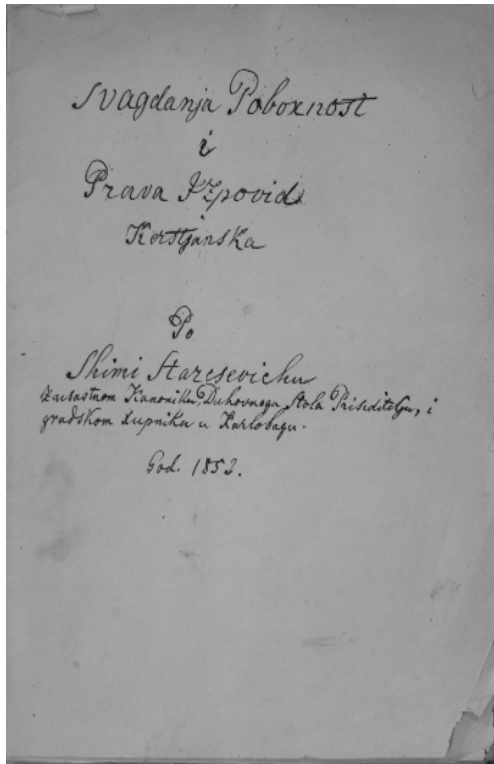 Svagdanja Poboxnost
i
Prava Izpovid
Kerstjanska
Po
Shimi Starcsevichu
Zacsastnom Kanoniku, Duhovnoga Stola Prisiditelju, i
gradskom xupniku u Karlobagu.
God. 1852.